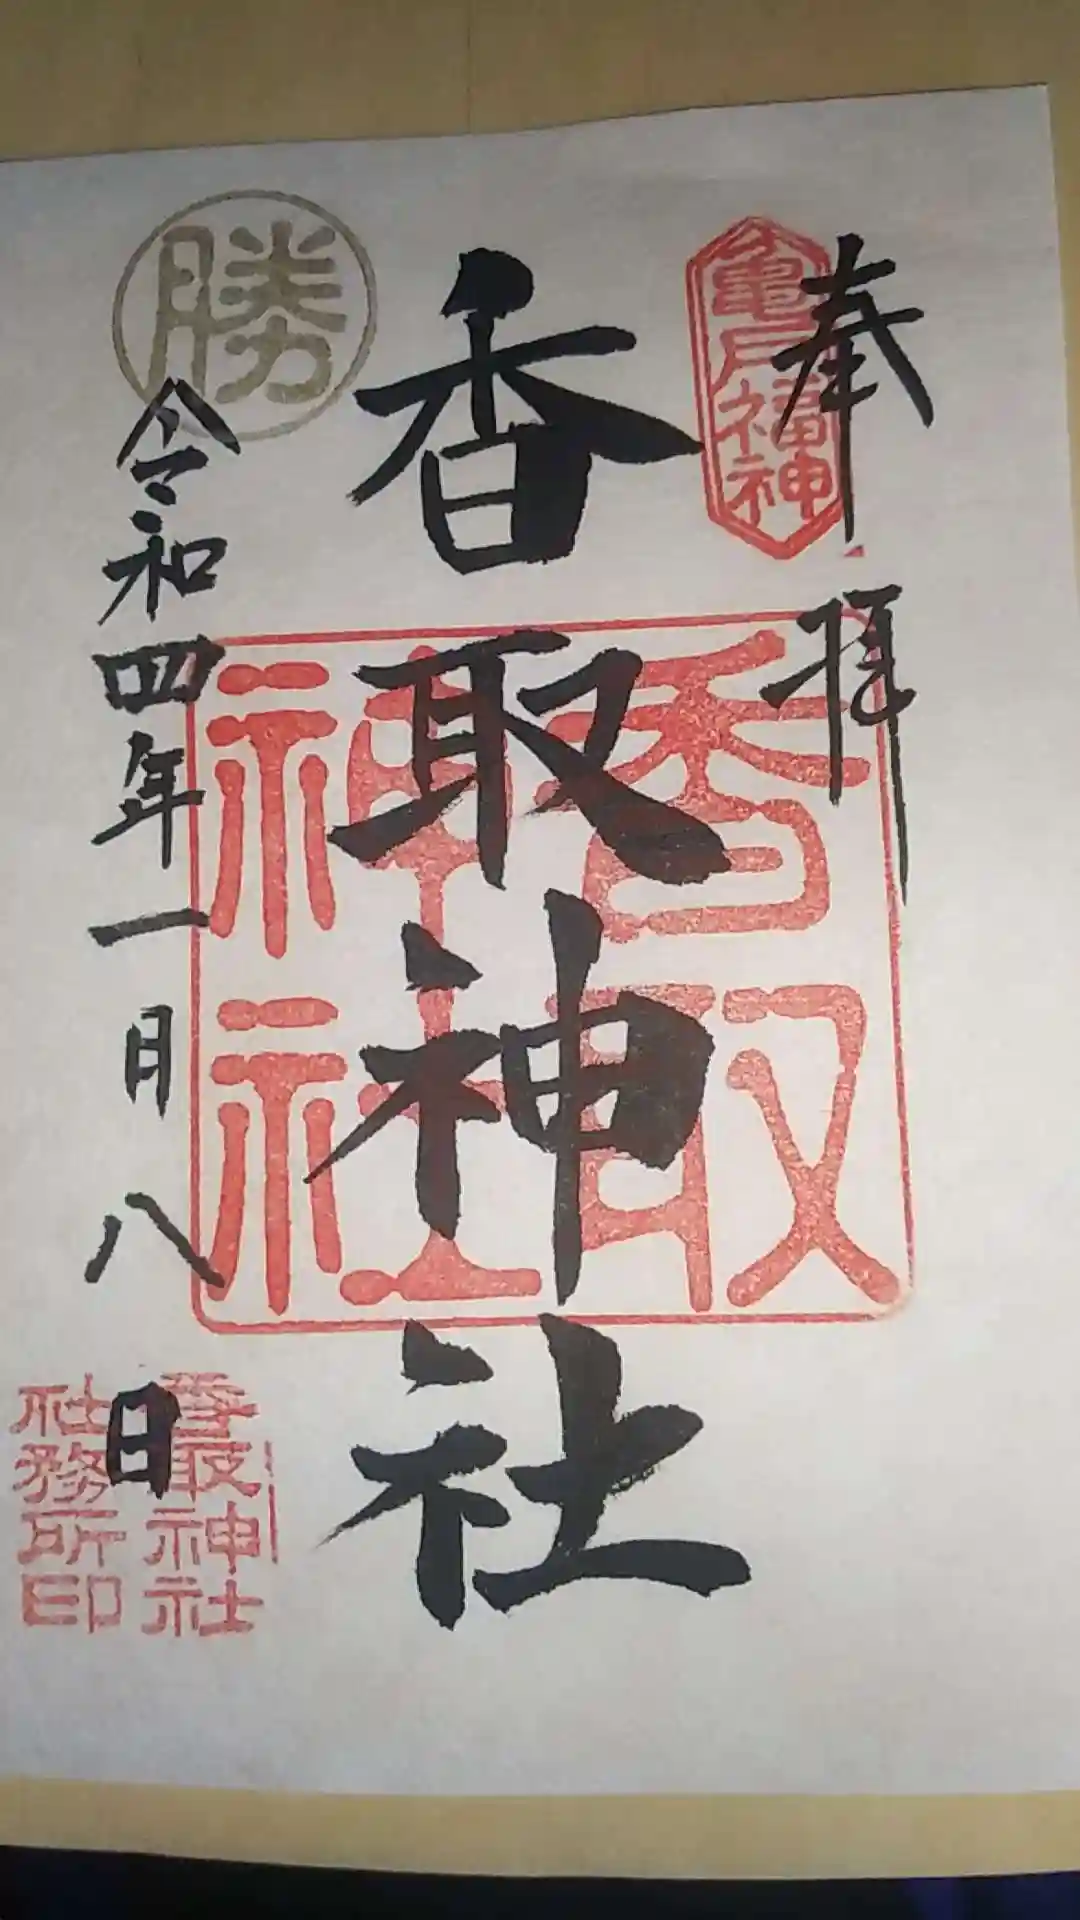 奉拝
亀戸福神
香取神社
香取
神社
勝
令和四年一月八日
香取神社
社務所印